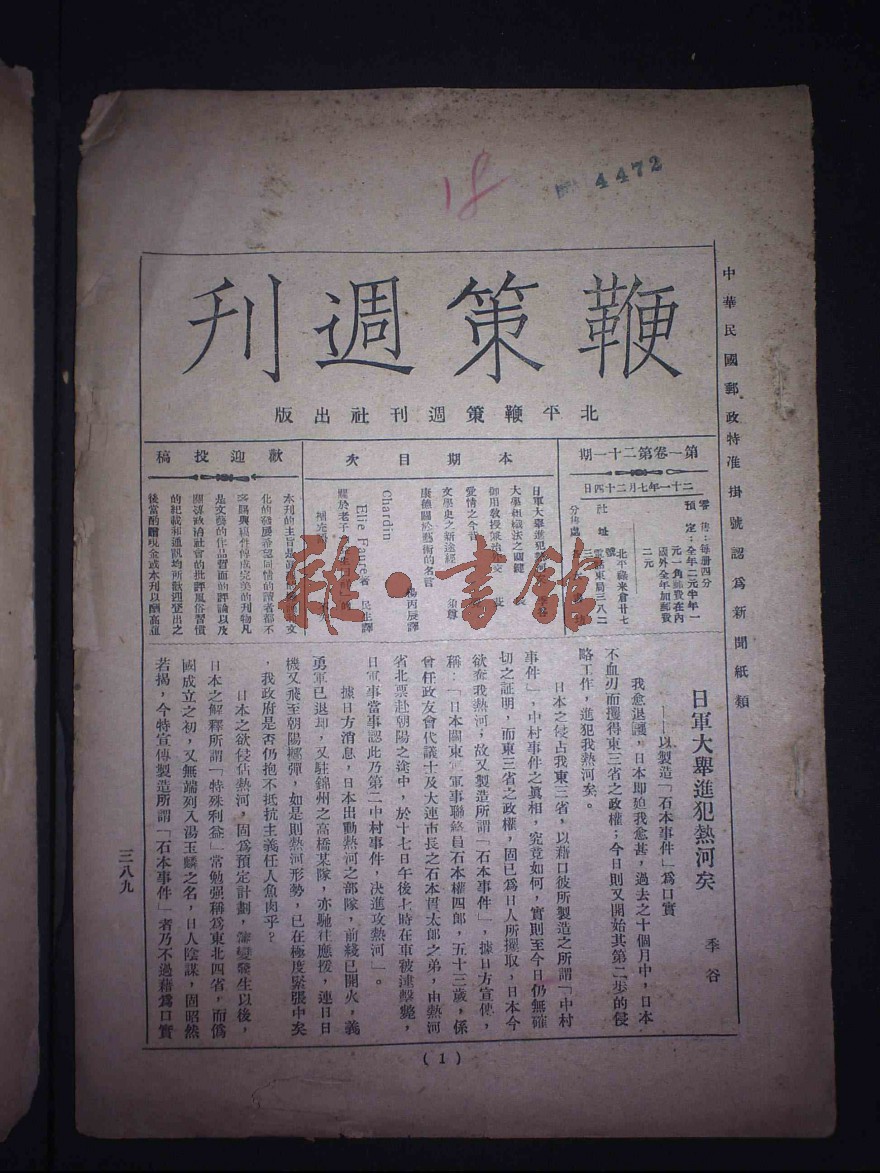 18
4472
中華民國郵政特准掛號認爲新聞紙類
鞭策週刊
北平鞭策週刊社出版
第一卷第二十一期
二十一年七月二十四日
零售：每册四分
預定：全年二元半年一
元一角郵費在內
國外全年加郵費
二元
社址
北平祿米倉廿七
號
電話東局三八二
三
分售處
本期目次
日軍大舉進犯熱河矣
大學組織法之關鍵
御用教授與治校
愛情之今昔
文學史之新途經 須尊
康德關於藝術的名言
楊丙辰譯
Chardin
Elie Faure著 民生譯
關於老子
補充
歡迎投稿
本刊的主旨是
化的發展希認同情的讀者都不
吝賜與稿件俾成完美的刊物凡
是文藝的作品書面的評論以及
關於政治社會的批評風俗習慣
的紀載和通訊均所歡迎登出之
後當酌贈現金或本刊以酬高誼
日軍大舉進犯熱河矣
——以製造「石本事件」爲口實
季谷
我愈退讓，日本即迫我愈甚，過去之十個月中，日本
不血刃而攫得東三省之政權；今日則又開始其第二步的侵
略工作，進犯我熱河矣。
日本之侵占我東三省，以藉口彼所製造之所謂「中村
事件」，中村事件之眞相，究竟如何，實則至今日仍無確
切之証明，而東三省之政權，固已爲日人所攫取，日本今
欲奪我熱河，故又製造所謂「石本事件」，據日方宣傳，
稱：「日本關東軍軍事聯絡員石本權四郎，五十三歲，係
曾任政友會代議士及大連市長之石本貫太郎之弟，由熱河
省北票赴朝陽之途中，於十七日午後七時在車被連擊斃，
日軍事當事認此乃第二中村事件，決進攻熱河」。
據日方消息，日本出動熱河之部隊，前綫已開火，義
勇軍已退却，又駐錦州之高橋某隊，亦馳往應援，連日日
機又飛至朝陽擲彈，如是則熱河形勢，已在極度緊張中矣
，我政府是否仍抱不抵抗主義任人魚肉乎？
日本之欲侵佔熱河，固爲預定計劃，瀋變發生以後，
日本之解釋所謂「特殊利益」常勉强稱爲東北四省，而僞
國成立之初，又無端列入湯玉麟之名，日人陰謀，固昭然
若揭，今特宣傳製造所謂「石本事件」者乃不過藉爲口實
三八九
(1)
雜·書館